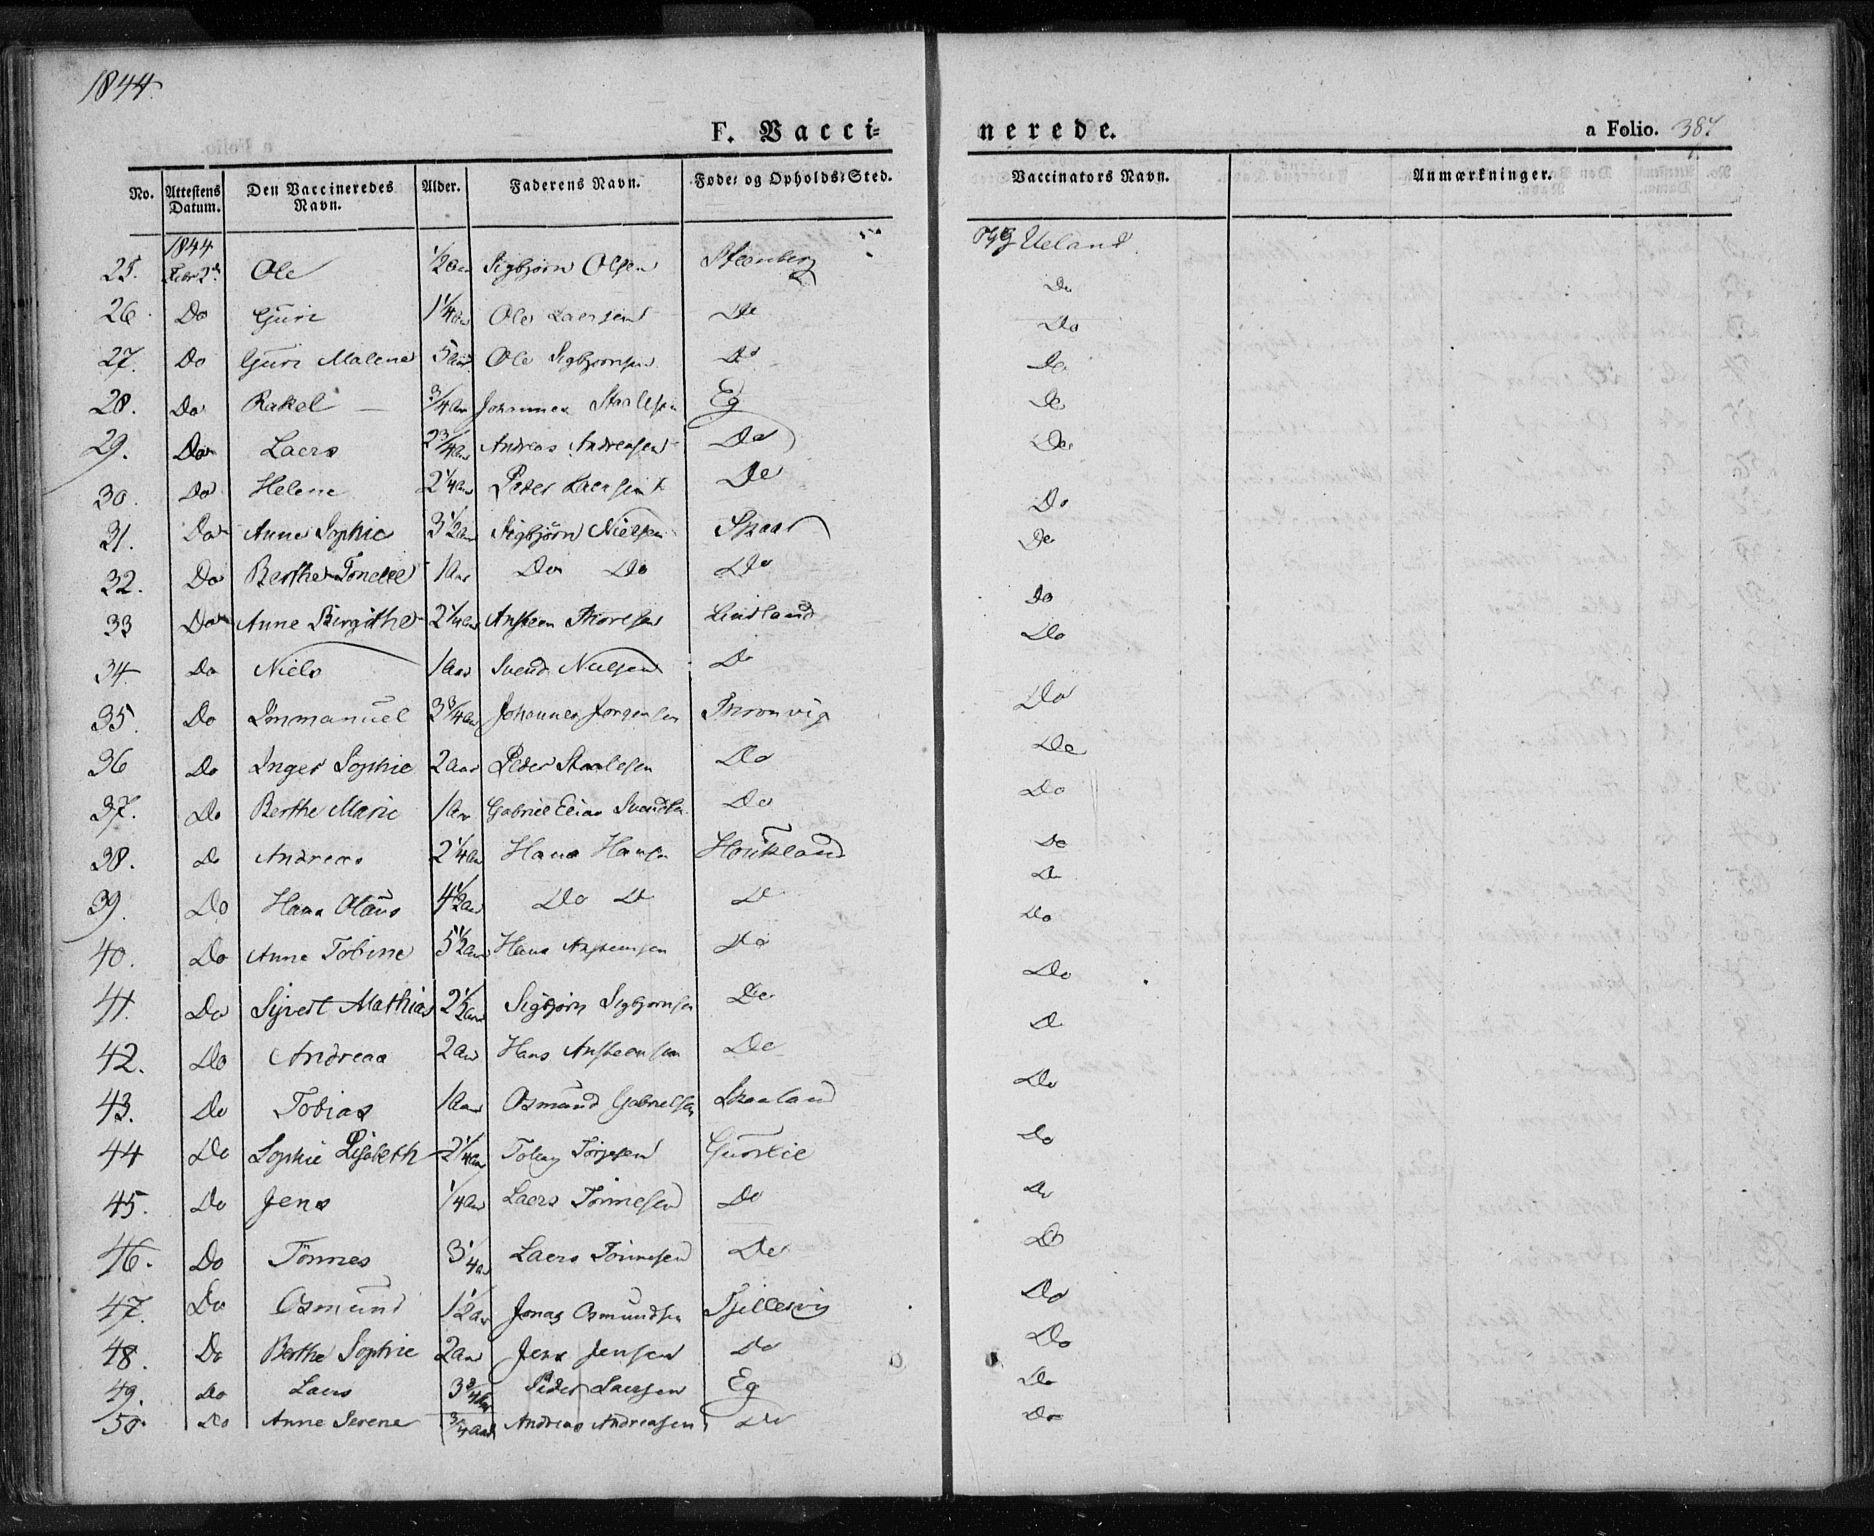 1844.
F. Vacci= nerede. a Folio. 387
No. Attestens Datum. Den Vaccineredes Navn. Alder. Faderens Navn. Føde= og Opholds=Sted. Vaccinators Navn. Anmærkninger.
1844
25. Febr 2d Ole 1/2 aar Sigbjørn Olsen Steenberg Ueland
26. Do Guri 1 1/4 aar Ole Laersen Do Do
27. Do Guri Malene 5 aar Ole Sigbjørnsen Do Do
28. Do Rakel 3/4 aar Johannes Staalesen Eg Do
29. Do Laers 2 3/4 aar Andreas Andreasen Do Do
30. Do Helene 2 1/4 aar Peder Laersen Do Do
31. Do Anne Sophie 3 1/2 aar Sigbjörn Nielsen Skaar Do
32. Do Berthe Tonette 1 aar Do Do Do Do
33 Do Anne Birgithe 2 1/4 aar Ansteen Thorsen Lindland Do
34 Do Niels 1 aar Svend Nielsen Do Do
35 Do Immanuel 3 3/4 aar Johannes Jørgensen Do
36 Do Inger Sophie 2 aar Peder Staalesen Do Do
37. Do Berthe Marie 1 aar Gabriel Elias Svendsen Do Do
38. Do Andreas 2 1/4 aar Hans Hansen Houkland Do
39. Do Hans Olaus 4 1/2 aar Do Do Do Do
40. Do Anne Tobine 5 1/2 aar Hans Ansteensen Do Do
41. Do Sivert Mathias 2 1/2 aar Sigbjørn Sigbjørnsen Do Do
42. Do Andreas 2 aar Hans Ansteensen Do Do
43. Do Tobias 1 aar Osmund Gabrielsen Skaaland Do
44 Do Sophie Lisabeth 2 1/4 aar Tolay Torjesen Do
45. Do Jens 1/4 aar Laers Tønnesen Do Do
46. Do Tønnes 3 1/4 aar Laers Tønnesen Do Do
47. Do Osmund 1 1/2 aar Jonas Osmundsen Do
48. Do Berthe Sophie 2 aar Jens Jensen Do Do
49. Do Laers 3 3/4 aar Peder Laersen Eg Do
50. Do Anne Serene 3/4 aar Andreas Andreasen Do Do